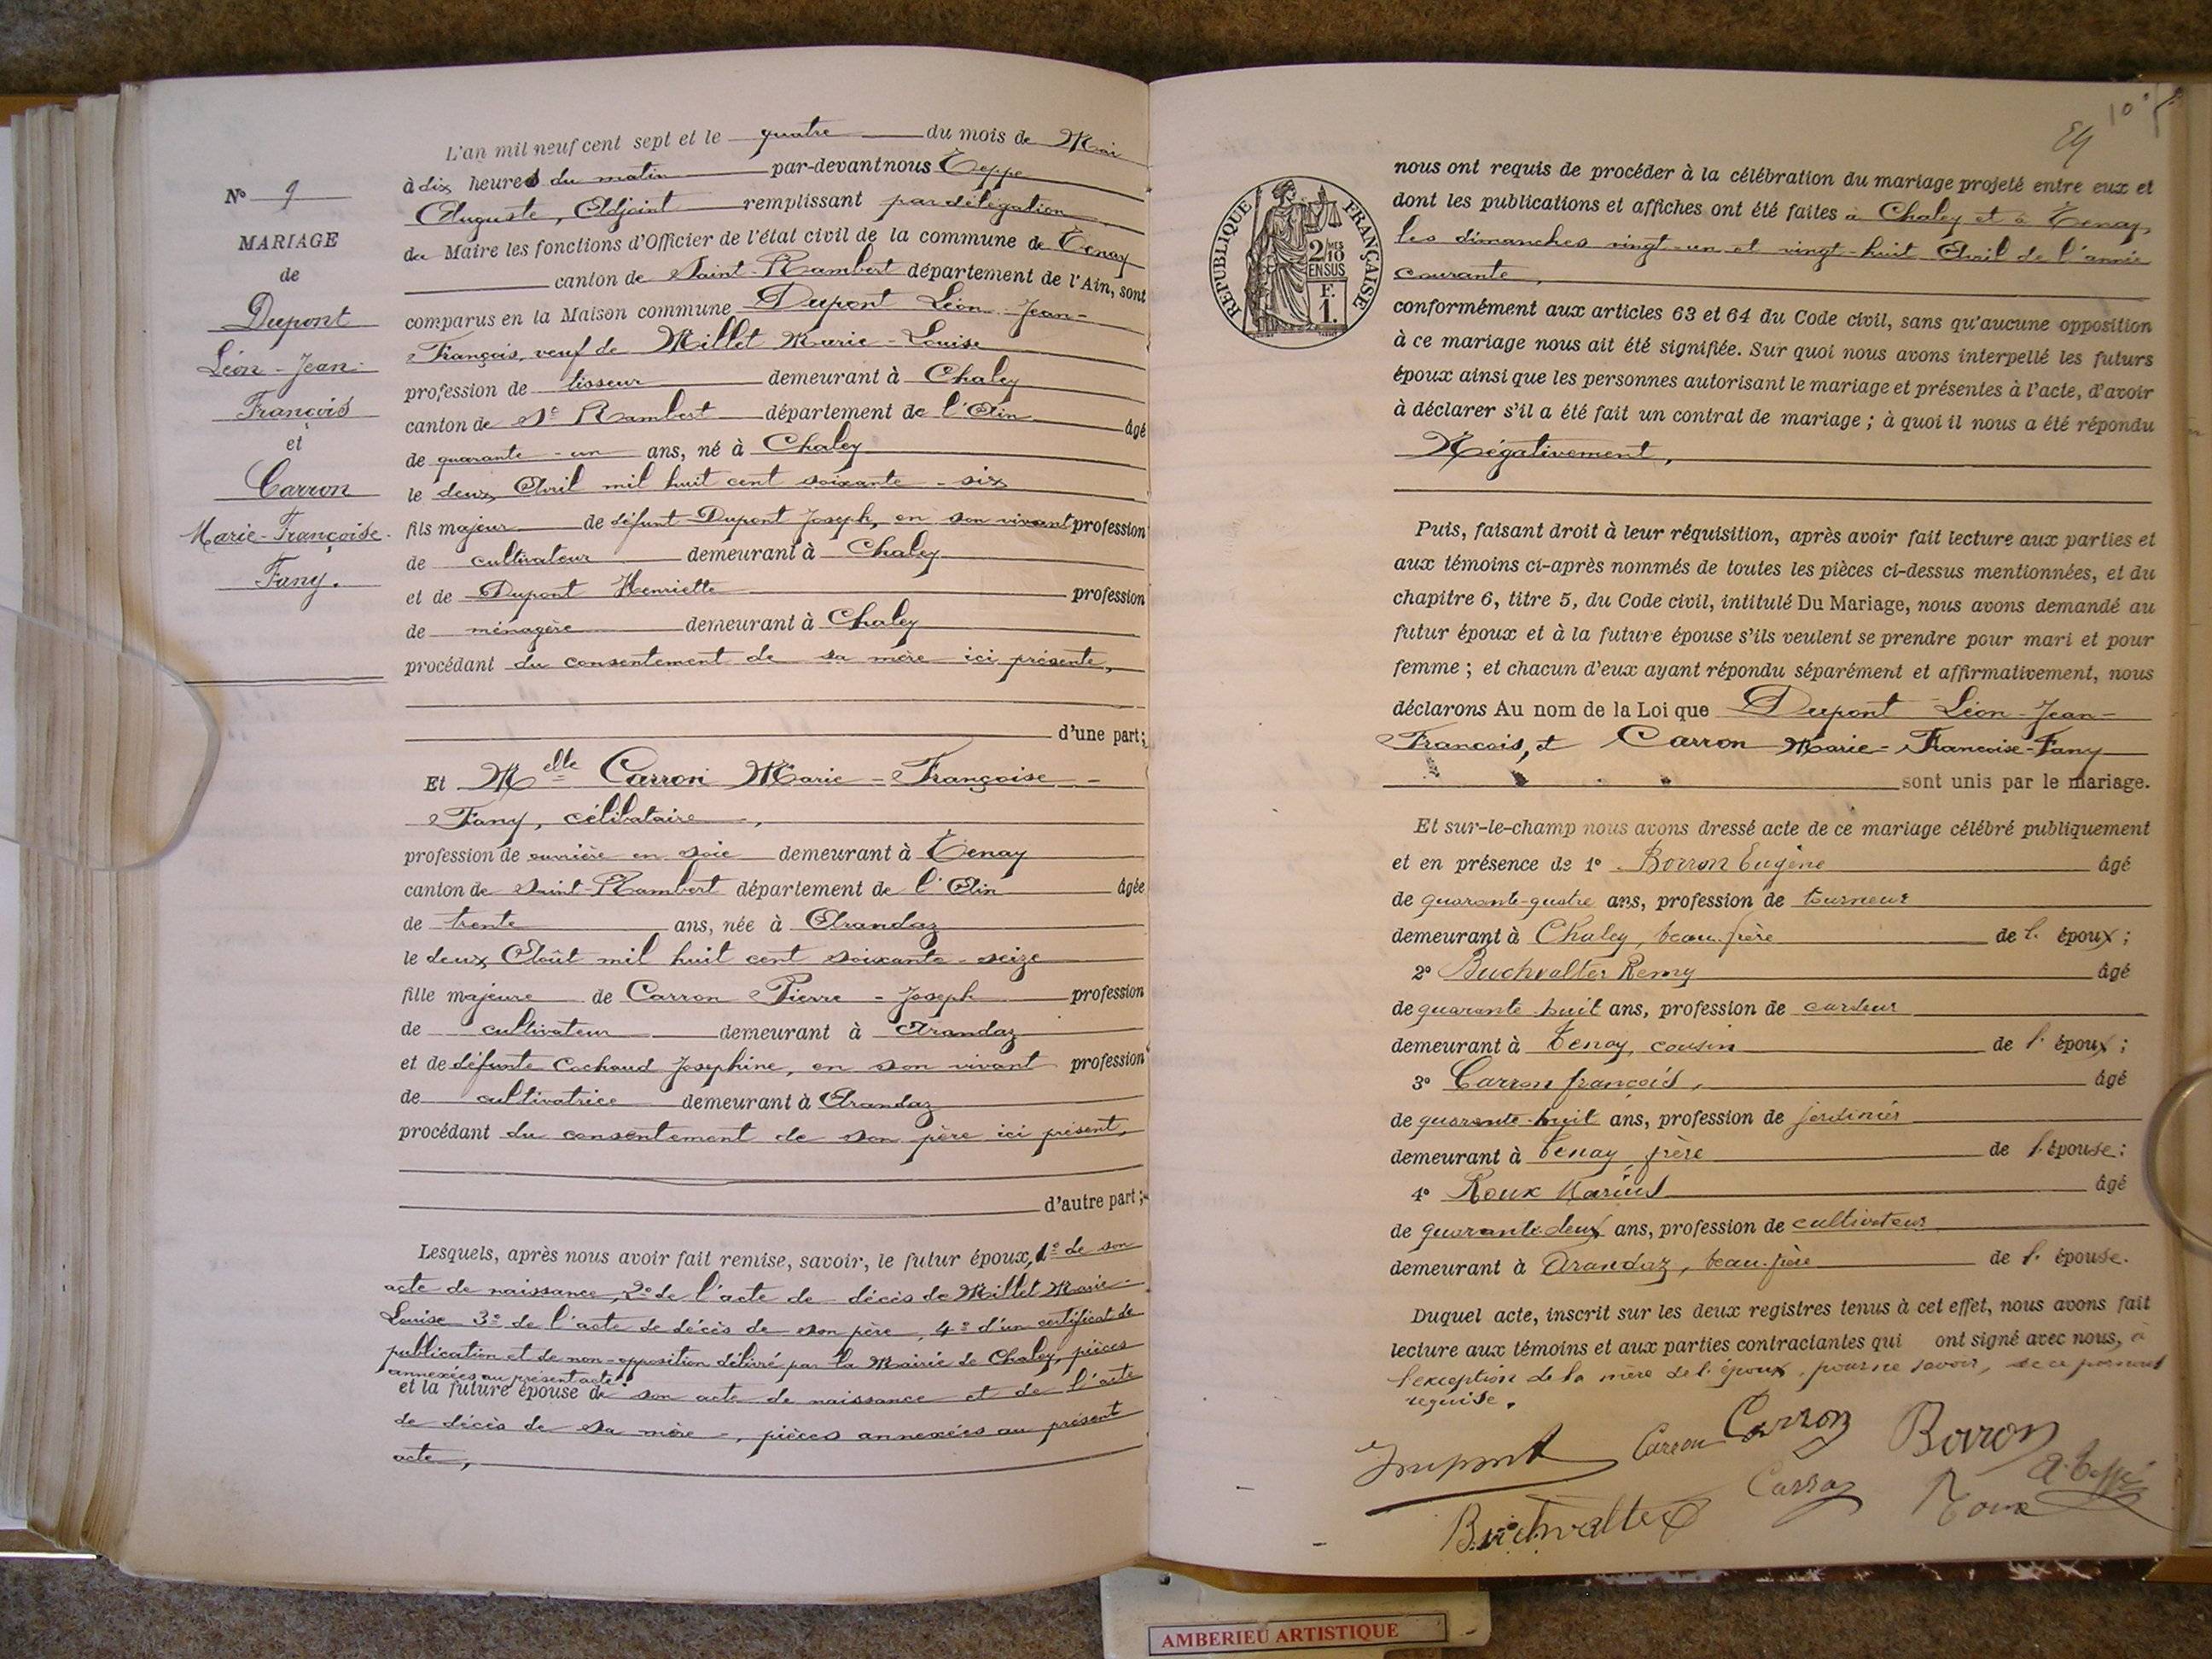 L'an mil neuf cent sept et le quatre du mois de Mai
à dix heures du matin par-devant nous Teppe
Auguste, Adjoint remplissant par délégation
du Maire les fonctions d'Officier de l'état civil de la commune de Tenay
canton de Saint-Rambert département de l'Ain, sont
comparus en la Maison commune Dupont Léon-Jean-
François, veuf de Millet Marie-Louise
profession de tisseur demeurant à Chaley
canton de St Rambert département de l'Ain âgé
de quarante-un ans, né à Chaley
le deux Avril mil huit cent soixante-six
fils majeur de défunt Dupont Joseph, en son vivant profession
de cultivateur demeurant à Chaley
et de Dupont Henriette profession
de ménagère demeurant à Chaley
procédant du consentement de sa mère ici présente,
d'une part;
Et Melle Carron Marie-Françoise-
Fany, célibataire,
profession de ouvrière en soie demeurant à Tenay
canton de Saint-Rambert département de l'Ain âgée
de trente ans, née à Arandaz
le deux Août mil huit cent soixante-seize
fille majeure de Carron Pierre-Joseph profession
de cultivateur demeurant à Arandaz
et de défunte Cochaud Josephine, en son vivant profession
de cultivatrice demeurant à Arandaz
procédant du consentement de son père ici présent,
d'autre part;
Lesquels, après nous avoir fait remise, savoir, le futur époux, 1° de son
acte de naissance, 2° de l'acte de décès de Millet Marie-
Louise 3° de l'acte de décès de son père, 4° d'un certificat de
publication et de non-opposition délivré par la Mairie de Chaley, pièces
annexées au présent acte
et la future épouse de son acte de naissance et de l'acte
de décès de sa mère, pièces annexées au présent
acte,
N° 9
MARIAGE
de
Dupont
Léon-Jean-
François
et
Carron
Marie-Françoise-
Fany.
10
RÉPUBLIQUE FRANÇAISE
2/10 MES
EN SUS
F.
1.
nous ont requis de procéder à la célébration du mariage projeté entre eux et
dont les publications et affiches ont été faites à Chaley et à Tenay,
les dimanches vingt-un et vingt-huit Avril de l'année
courante,
conformément aux articles 63 et 64 du Code civil, sans qu'aucune opposition
à ce mariage nous ait été signifiée. Sur quoi nous avons interpellé les futurs
époux ainsi que les personnes autorisant le mariage et présentes à l'acte, d'avoir
à déclarer s'il a été fait un contrat de mariage ; à quoi il nous a été répondu
Négativement,
Puis, faisant droit à leur réquisition, après avoir fait lecture aux parties et
aux témoins ci-après nommés de toutes les pièces ci-dessus mentionnées, et du
chapitre 6, titre 5, du Code civil, intitulé Du Mariage, nous avons demandé au
futur époux et à la future épouse s'ils veulent se prendre pour mari et pour
femme ; et chacun d'eux ayant répondu séparément et affirmativement, nous
déclarons Au nom de la Loi que Dupont Léon-Jean-
François, et Carron Marie-Françoise-Fany
sont unis par le mariage.
Et sur-le-champ nous avons dressé acte de ce mariage célébré publiquement
et en présence de 1° Borron Eugène âgé
de quarante-quatre ans, profession de tourneur
demeurant à Chaley, beau-frère de l' époux ;
2° Buchvalter Remy âgé
de quarante huit ans, profession de cardeur
demeurant à Tenay, cousin de l' époux ;
3° Carron françois, âgé
de quarante-huit ans, profession de jardinier
demeurant à Tenay, frère de l'épouse ;
4° Roux Marius âgé
de quarante deux ans, profession de cultivateur
demeurant à Arandaz, beau-frère de l' épouse.
Duquel acte, inscrit sur les deux registres tenus à cet effet, nous avons fait
lecture aux témoins et aux parties contractantes qui ont signé avec nous, à
l'exception de la mère de l'époux, pour ne savoir, de ce par nous
requise.
Dupont Carron Carron Borron
Buchvalter Carron Roux A. Teppe
AMBERIEU ARTISTIQUE